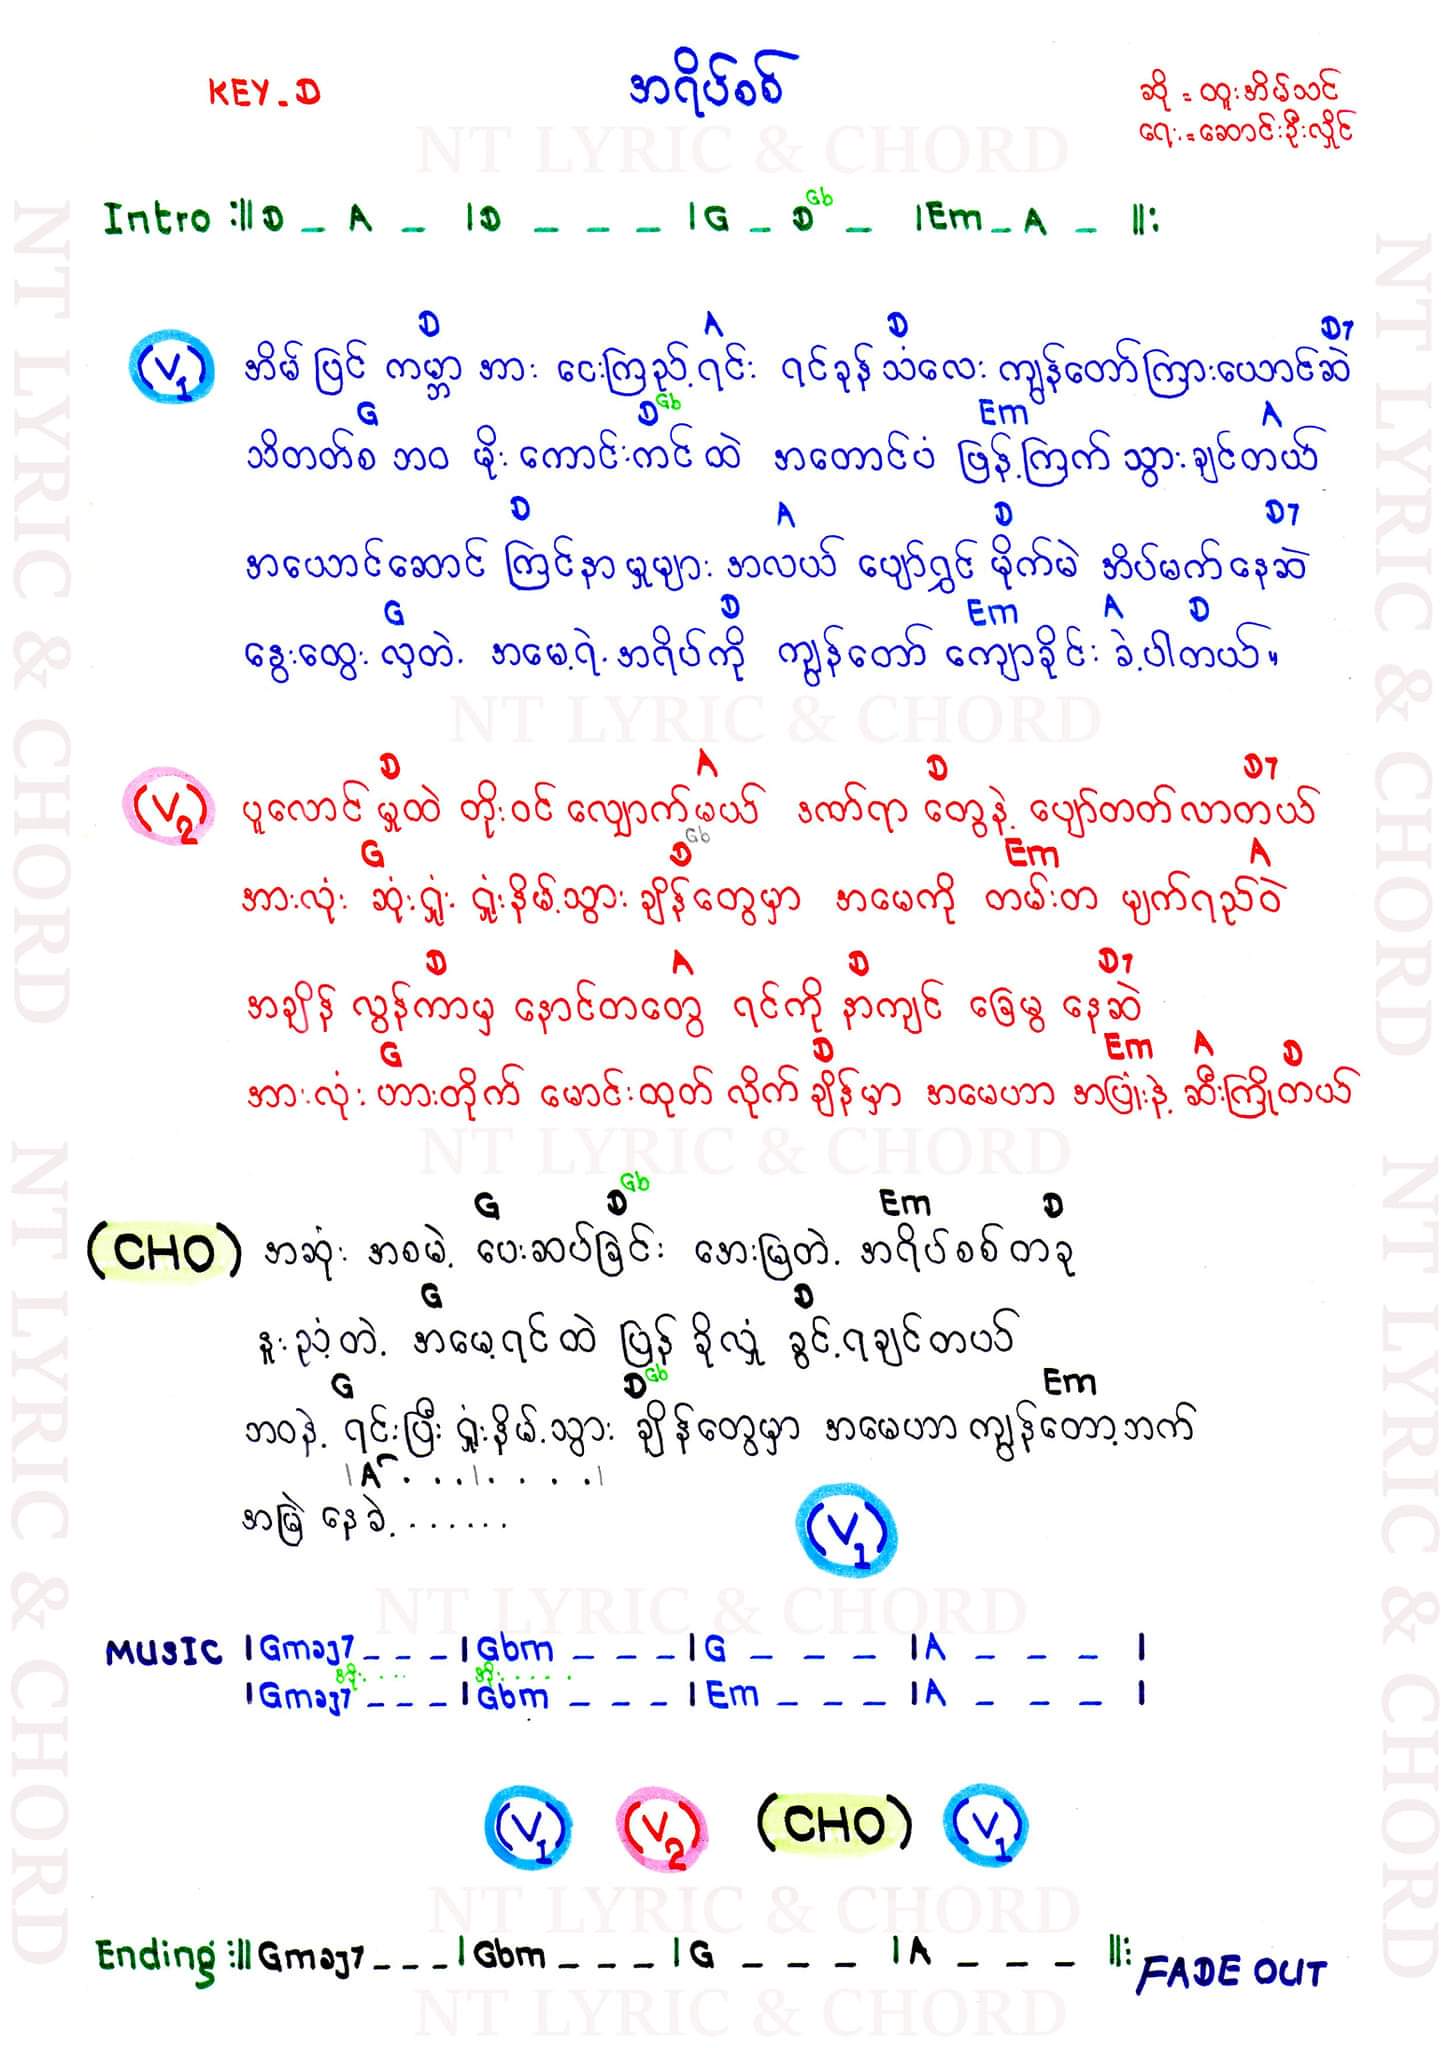 KEY - D
အရိပ်စစ်
ဆို = ထူးအိမ်သင်
ရေး = ဆောင်းဦးလှိုင်
NT LYRIC & CHORD
Intro :|| D _ A _ | D _ _ _ | G _ D Gb _ | Em _ A _ ||:
D A D D7
(V1) အိမ်ပြင် ကမ္ဘာ အား ငေးကြည့်ရင်း ရင်ခုန်သံလေး ကျွန်တော်ကြားယောင်ဆဲ
G D Gb Em A
သိတတ်စ ဘဝ မိုးကောင်းကင်ထဲ အတောင်ပံ ဖြန့်ကြက်သွားချင်တယ်
D A D D7
အယောင်ဆောင် ကြင်နာမှုများ အလယ် ပျော်ရွှင်မိုက်မဲ အိပ်မက်နေဆဲ
G D Em A D
နွေးထွေးလှတဲ့ အမေ့ရဲ့အရိပ်ကို ကျွန်တော် ကျောခိုင်းခဲ့ပါတယ်။
NT LYRIC & CHORD
D A D D7
(V2) ပူလောင်မှုထဲ တိုးဝင်လျှောက်မယ် ဒဏ်ရာတွေနဲ့ ပျော်တတ်လာတယ်
G D Gb Em A
အားလုံး ဆုံးရှုံး ရှုံးနိမ့်သွားချိန်တွေမှာ အမေကို တမ်းတ မျက်ရည်ဝဲ
D A D D7
အချိန် လွန်ကာမှ နောင်တတွေ ရင်ကို နာကျင် ခြေမွ နေဆဲ
G D Em A D
အားလုံး ဟားတိုက် မောင်းထုတ်လိုက်ချိန်မှာ အမေဟာ အပြုံးနဲ့ ဆီးကြိုတယ်
NT LYRIC & CHORD
G D Gb Em D
(CHO) အဆုံး အစမဲ့ ပေးဆပ်ခြင်း အေးမြတဲ့ အရိပ်စစ်တခု
G D
နူးညံ့တဲ့ အမေ့ရင်ထဲ ပြန်ခိုလှုံ ခွင့်ရချင်တယ်
G D Gb Em
ဘဝနဲ့ ရင်းပြီး ရှုံးနိမ့်သွားချိန်တွေမှာ အမေဟာကျွန်တော့်ဘက်
|A . . . | . . . . |
အမြဲ နေခဲ့.......
(V1)
NT LYRIC & CHORD
MUSIC | Gmaj7 _ _ _ | Gbm _ _ _ | G _ _ _ | A _ _ _ |
| Gmaj7 _ _ _ | Gbm _ _ _ | Em _ _ _ | A _ _ _ |
(V1) (V2) (CHO) (V1)
NT LYRIC & CHORD
Ending :|| Gmaj7 _ _ _ | Gbm _ _ _ | G _ _ _ | A _ _ _ ||: FADE OUT
NT LYRIC & CHORD
NT LYRIC & CHORD
NT LYRIC & CHORD
NT LYRIC & CHORD
NT LYRIC & CHORD